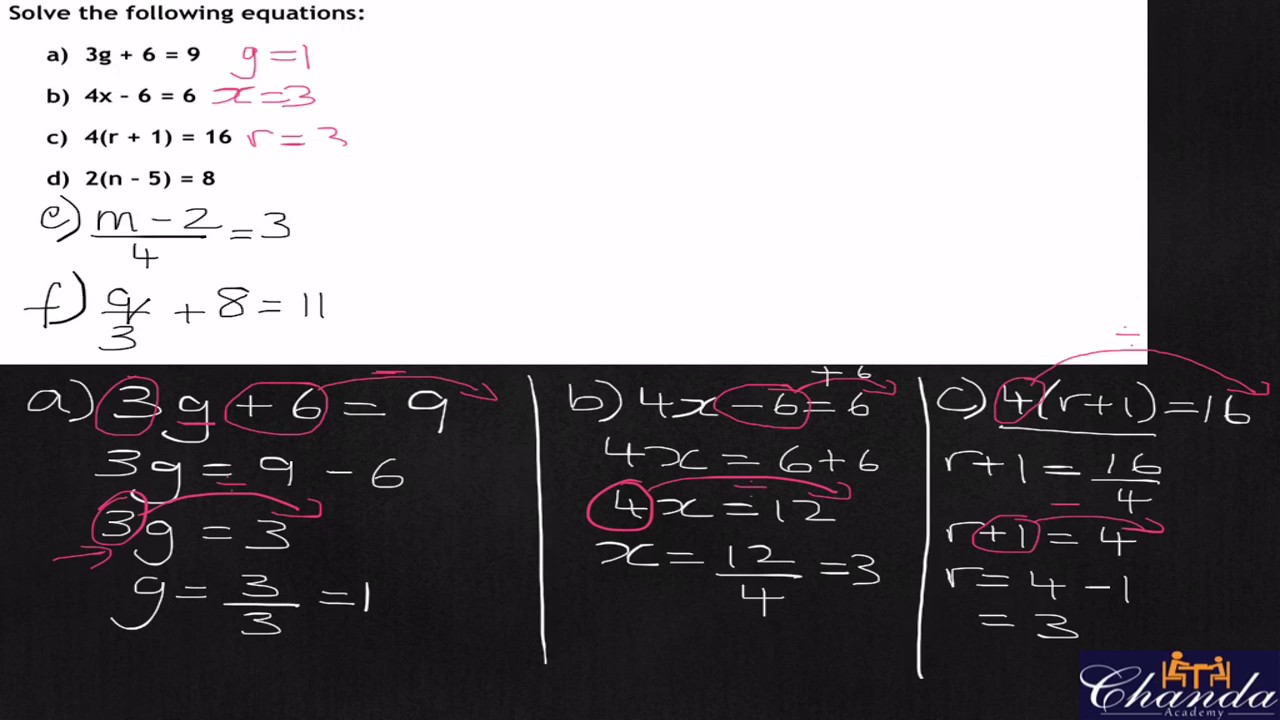 Solve the following equations:
a) 3g + 6 = 9 g = 1
b) 4x - 6 = 6 x = 3
c) 4(r + 1) = 16 r = 3
d) 2(n - 5) = 8
e) m - 2 / 4 = 3
f) q / 3 + 8 = 11
a) 3g + 6 = 9
-
3g = 9 - 6
3g = 3
÷
g = 3/3 = 1
b) 4x - 6 = 6
+ 6
4x = 6 + 6
4x = 12
÷
x = 12/4 = 3
c) 4(r+1) = 16
÷
r+1 = 16/4
r+1 = 4
-
r = 4 - 1
= 3
Chanda
Academy